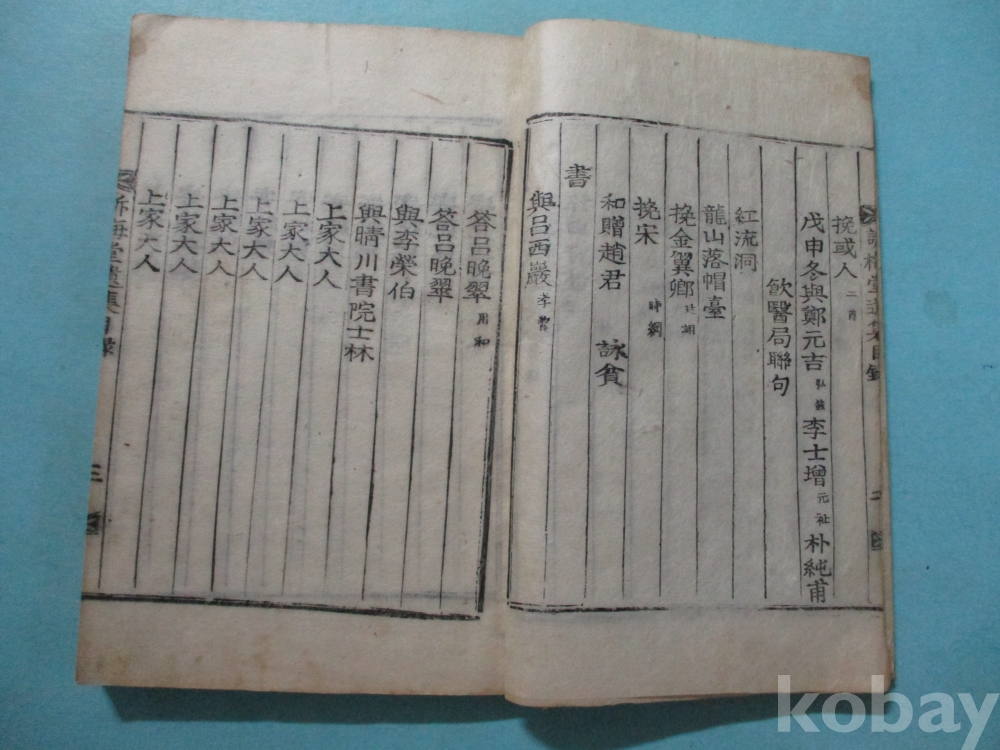 挽或人 二首
戊申冬與鄭元吉 李士增 元祉 朴純甫
飮醫局聯句
紅流洞
龍山落帽臺
挽金翼卿
挽宋 時綱
和贈趙君 詠貧
書
與呂西巖 孝曾
答呂晩翠 用和
答呂晩翠
與李榮伯
與晴川書院士林
上家大人
上家大人
上家大人
上家大人
上家大人
上家大人
三
kobay